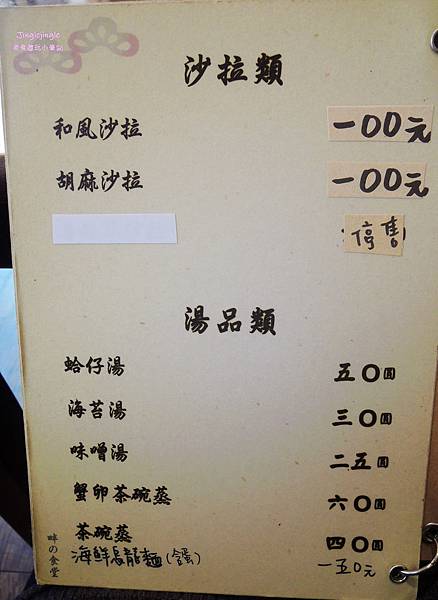 Jinglejingle
沙拉類
和風沙拉 一00元
胡麻沙拉 一00元
停售
湯品類
蛤仔湯 五〇圓
海苔湯 三〇圓
味噌湯 二五圓
蟹卵茶碗蒸 六〇圓
茶碗蒸 四〇圓
海鮮烏龍麵(含蛋) 一五0元
畔の食堂